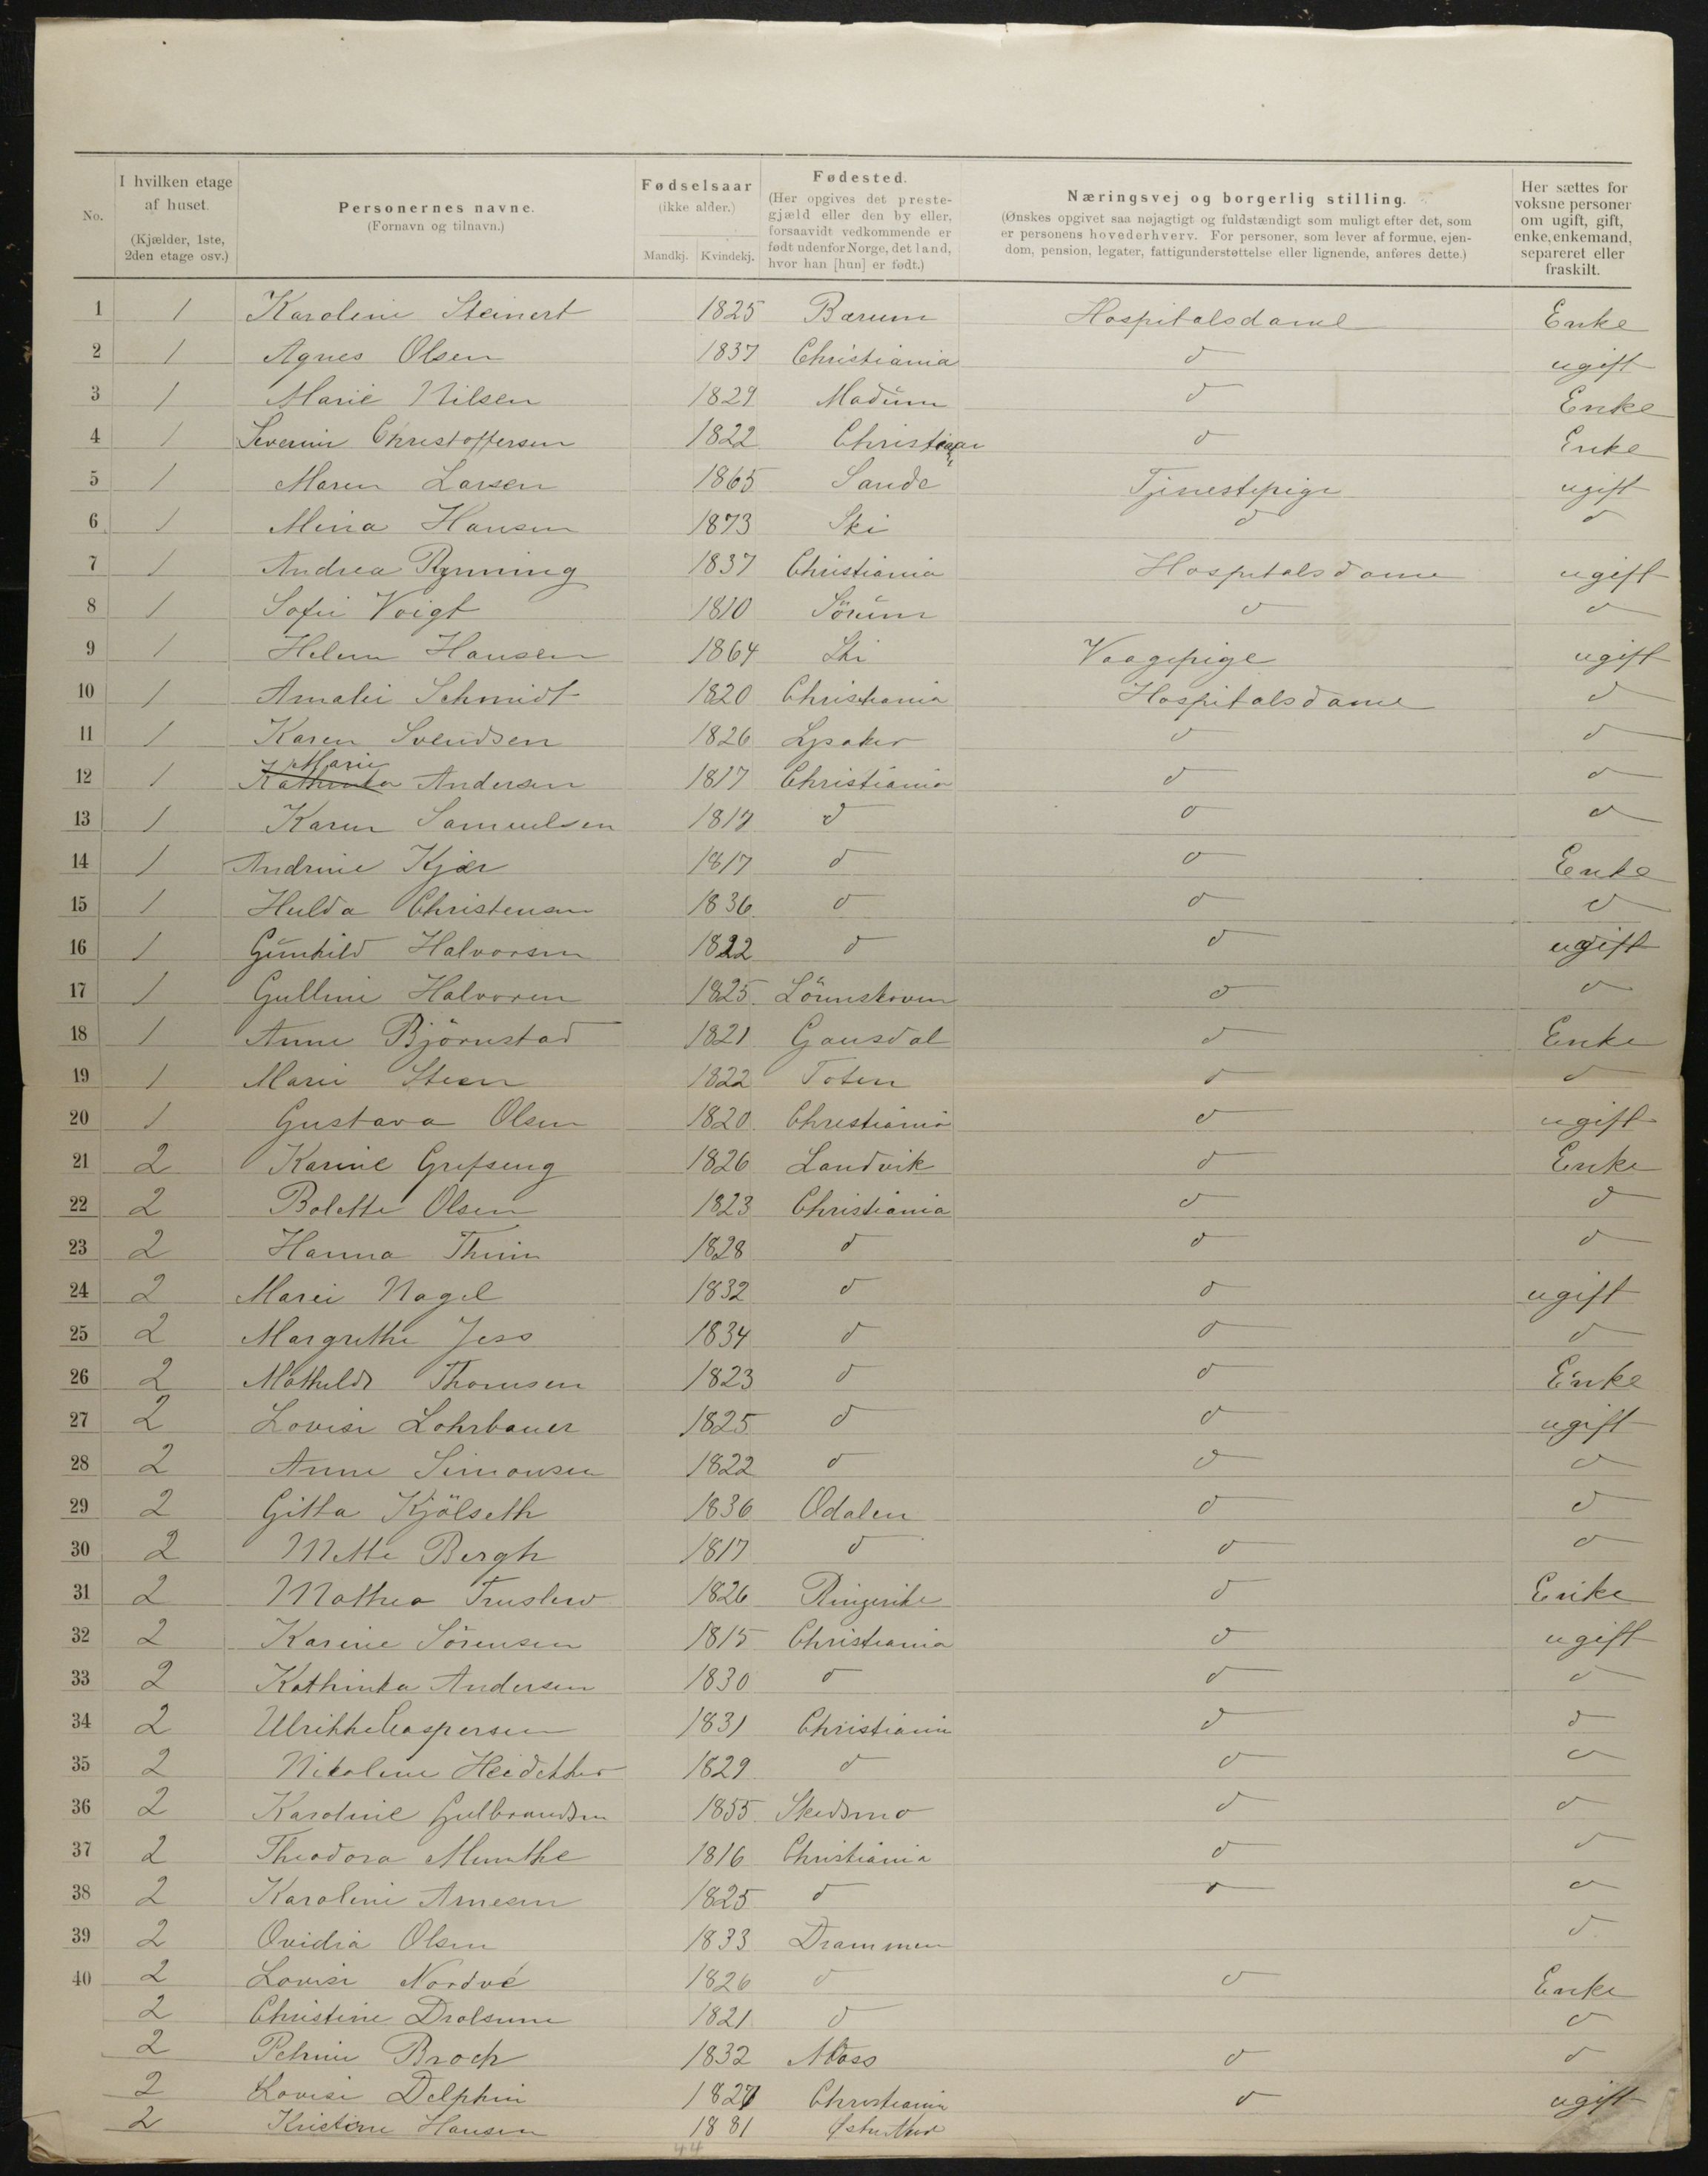 No.
I hvilken etage af huset.
(Kjælder, 1ste, 2den etage osv.)
Personernes navne.
(Fornavn og tilnavn.)
Fødselsaar
(ikke alder.)
Mandkj. Kvindekj.
Fødested.
(Her opgives det prestegjæld eller den by eller, forsaavidt vedkommende er født udenfor Norge, det land, hvor han [hun] er født.)
Næringsvej og borgerlig stilling.
(Ønskes opgivet saa nøjagtigt og fuldstændigt som muligt efter det, som er personens hovederhverv. For personer, som lever af formue, ejendom, pension, legater, fattigunderstøttelse eller lignende, anføres dette.)
Her sættes for voksne personer om ugift, gift, enke, enkemand, separeret eller fraskilt.
1 1 Karoline Steinert 1825 Bærum Hospitalsdame Enke
2 1 Agnes Olsen 1837 Christiania d ugift
3 1 Marie Nilsen 1829 Modum d Enke
4 1 Severine Christoffersen 1822 d Enke
5 1 Maren Larsen 1865 Sande Tjenestepige ugift
6 1 Mina Hansen 1873 Ski d d
7 1 Andrea Rynning 1837 Christiania Hospitalsdame ugift
8 1 Sofie Voigt 1810 Sörum d d
9 1 Helene Hansen 1864 Ski Vaagepige ugift
10 1 Amalie Schmidt 1820 Christiania Hospitalsdame d
11 1 Karen Svendsen 1826 Lysaker d d
12 1 Kathinka Marie Andersen 1817 Christiania d d
13 1 Karen Samuelsen d d d
14 1 Andrine Kjær 1817 d d Enke
15 1 Hulda Christensen 1836 d d d
16 1 Gunhild Halvorsen 1822 d d ugift
17 1 Gulline Halvorsen 1825 Lörenskoven d d
18 1 Anne Björnstad 1821 Gausdal d Enke
19 1 Marie Steen 1822 Toten d d
20 1 Gustava Olsen 1820 Christiania d ugift
21 2 Karine Grefseng 1826 Landvik d Enke
22 2 Bolette Olsen 1823 Christiania d d
23 2 Hanna 1828 d d d
24 2 Marie Nagel 1832 d d ugift
25 2 Margrethe Jess 1834 d d d
26 2 Mathilde Thomsen 1823 d d Enke
27 2 Lovise Lohrbauer 1825 d d ugift
28 2 Anne Simonsen 1822 d d d
29 2 Gitta Kjölseth 1836 Odalen d d
30 2 Mette Bergh 1817 d d d
31 2 Mathea Truslew 1826 Ringerike d Enke
32 2 Karine Sörensen 1815 Christiania d ugift
33 2 Kathinka Andersen 1830 d d d
34 2 Ulrikke Caspersen 1831 Christiania d d
35 2 Nikoline 1829 d d d
36 2 Karoline Gulbrandsen 1855 Skedsmo d d
37 2 Theodora Munthe 1816 Christiania d d
38 2 Karoline Arnesen 1825 d d d
39 2 Ovidia Olsen 1833 Drammen d
40 2 Lovise Nordvé 1826 d d Enke
2 Christine Drolsum 1821 d d
2 Petrine Broch 1832 Moss d d
2 Lovise Delphin 1827 Christiania d ugift
2 Kristine Hansen 1881
44